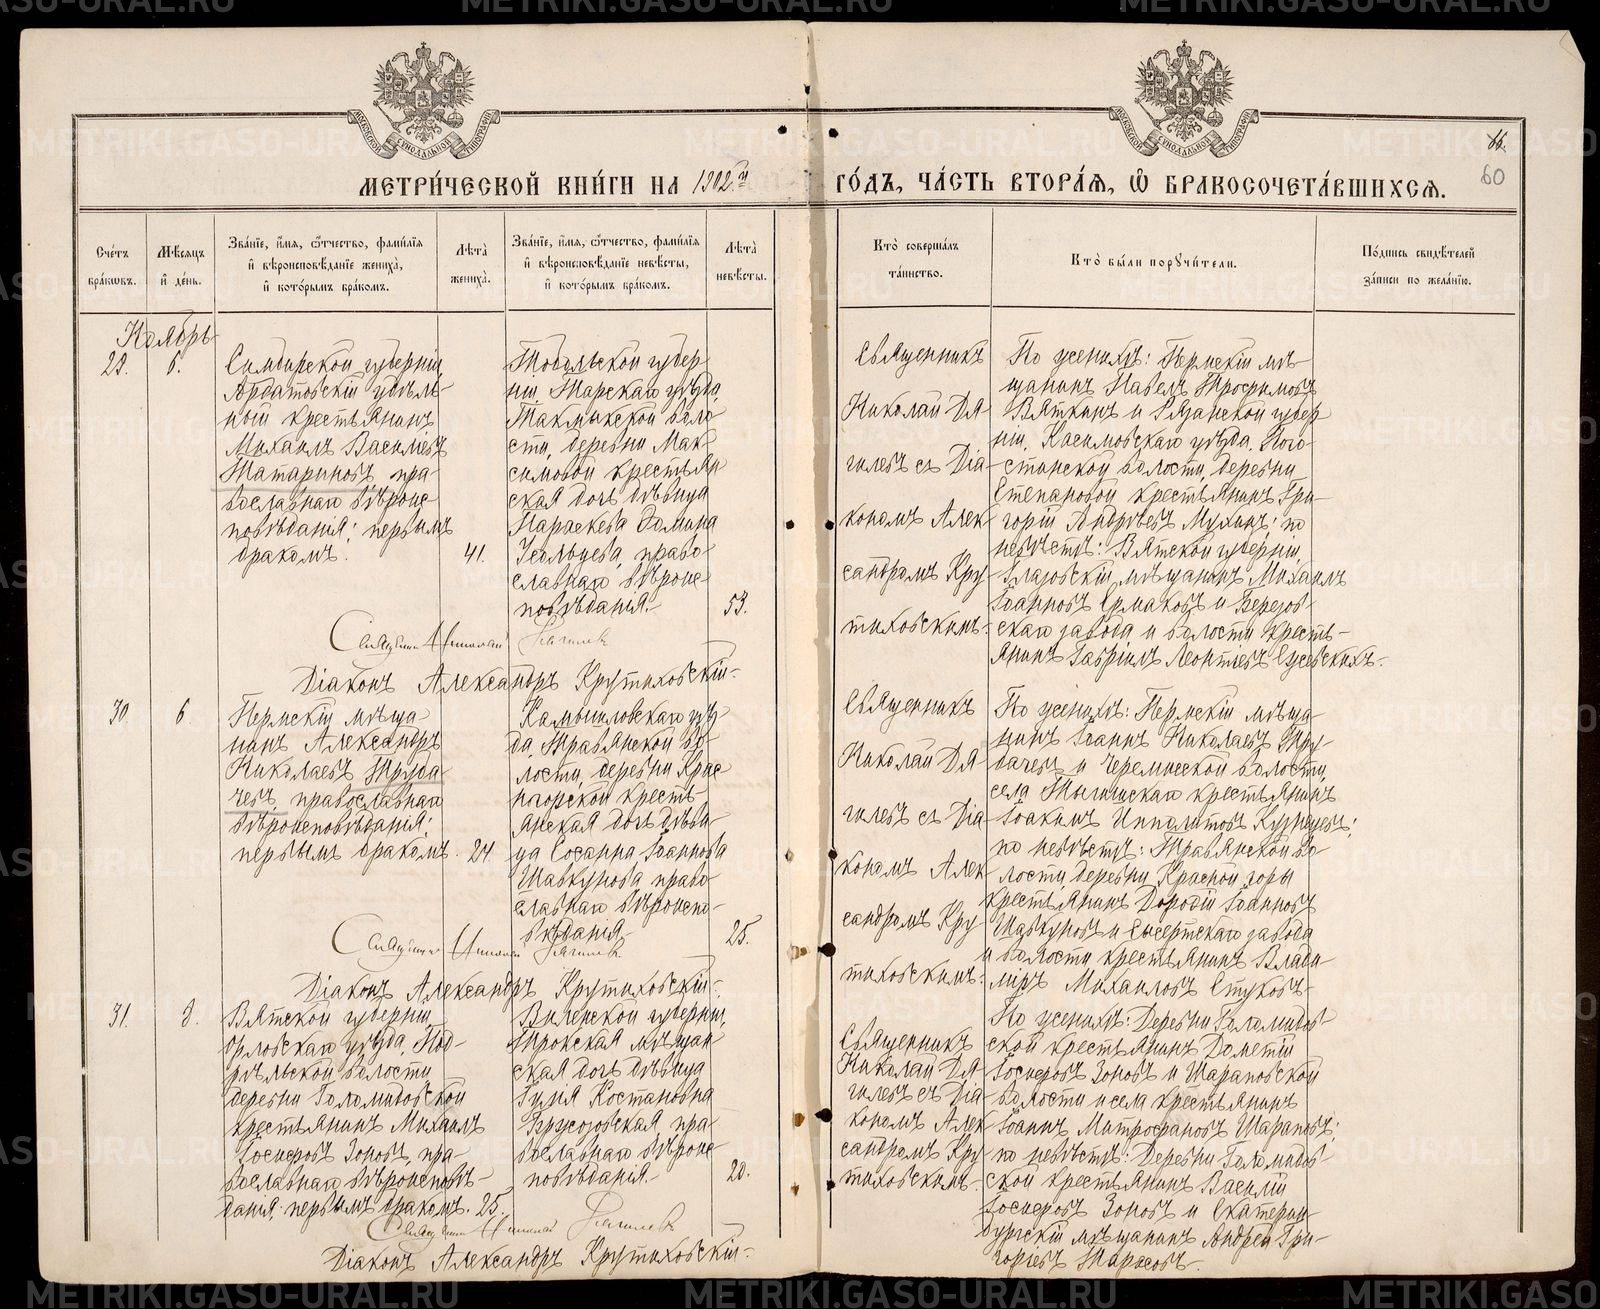 МЕТРИ́ЧЕСКОЙ КНИ́ГИ НА 1902й ГО́ДЪ, ЧА́СТЬ ВТОРА́Я, Ѽ БРАКОСОЧЕТА́ВШИХСЯ.
66.
60
Сче́тъ бра́ковъ.
Мѣ́сяцъ и҆ де́нь.
Зва́нїе, и҆́мя, ѻ҆́тчество, фами́лїя и҆ вѣроисповѣ́данїе жениха̀, и҆ кото́рымъ бра́комъ.
Лѣ́та жениха̀.
Зва́нїе, и҆́мя, ѻ҆́тчество, фами́лїя и҆ вѣроисповѣ́данїе невѣ́сты, и҆ кото́рымъ бра́комъ.
Лѣ́та невѣ́сты.
Кто̀ соверша́лъ та́инство.
Кто̀ бы́ли поручи́тели.
По́дпись свидѣ́телей за́писи по жела́нїю.
Ноябрь
29.
6.
Симбирской губерніи,
Ардатовскій удѣль-
ный крестьянинъ
Михаилъ Васильевъ
Татариновъ, пра-
вославнаго вѣроис-
повѣданія; первымъ
бракомъ.
41.
Тобольской губер-
ніи, Тарскаго уѣзда,
Такмыкской воло-
сти, деревни Мак-
симовой крестьян-
ская дочь дѣвица
Параскева Домина
Усольцева, право-
славнаго вѣроис-
повѣданія.
53.
Священникъ
Николай Дя-
гилевъ съ Діа-
кономъ Алек-
сандромъ Кру-
тиховскимъ.
По женихѣ: Пермскій мѣ-
щанинъ Павелъ Трофимовъ
Вяткинъ и Рязанской губер-
ніи, Касимовскаго уѣзда, Пого-
стинской волости, деревни
Степановой крестьянинъ Гри-
горій Андреевъ Мухинъ; по
невѣстѣ: Вятской губерніи,
Глазовскій мѣщанинъ Михаилъ
Іоанновъ Ермаковъ и Березов-
скаго завода и волости кресть-
янинъ Гавріилъ Леонтіевъ
Священникъ Николай Дягилевъ
Діаконъ Александръ Крутиховскій.
30.
6
Пермскій мѣща-
нинъ Александръ
Николаевъ Труба-
чевъ, православнаго
вѣроисповѣданія;
первымъ бракомъ.
24.
Камышловскаго уѣз-
да Травянской во-
лости, деревни Крас-
ногорской кресть-
янская дочь дѣви-
ца Сосанна Іоаннова
Шавкунова право-
славнаго вѣроиспо-
вѣданія.
25.
Священникъ
Николай Дя-
гилевъ съ Діа-
кономъ Алек-
сандромъ Кру-
тиховскимъ.
По женихѣ: Пермскій мѣща-
нинъ Іоаннъ Николаевъ Тру-
бачевъ и Черемисской волости,
села крестьянинъ
Іоакимъ Ипполитовъ Кузнецовъ;
по невѣстѣ: Травянской во-
лости деревни Красной горы
крестьянинъ Дорофій Іоанновъ
Шавкуновъ и Сысертскаго завода
и волости крестьянинъ Влади-
міръ Михаиловъ
Священникъ Николай Дягилевъ
Діаконъ Александръ Крутиховскій.
31.
8.
Вятской губерніи
Орловскаго уѣзда, Под-
рѣльской волости
деревни
крестьянинъ Михаилъ
Іосифовъ Зоновъ, пра-
вославнаго вѣроисповѣ-
данія; первымъ бракомъ.
25.
Виленской губерніи,
Трокская мѣщан-
ская дочь дѣвица
Юлія
пра-
вославнаго вѣроис-
повѣданія.
20.
Священникъ
Николай Дя-
гилевъ съ Діа-
кономъ Алек-
сандромъ Кру-
тиховскимъ.
По женихѣ: Деревни
крестьянинъ Дометій
Іосифовъ Зоновъ и Шараповской
волости и села крестьянинъ
Іоаннъ Митрофановъ Шараповъ;
по невѣстѣ: Деревни
крестьянинъ Василій
Іосифовъ Зоновъ и Екатерин-
бургскій мѣщанинъ Андрей Гри-
горіевъ Тарасовъ.
Священникъ Николай Дягилевъ
Діаконъ Александръ Крутиховскій.
METRIKI.GASO-URAL.RU